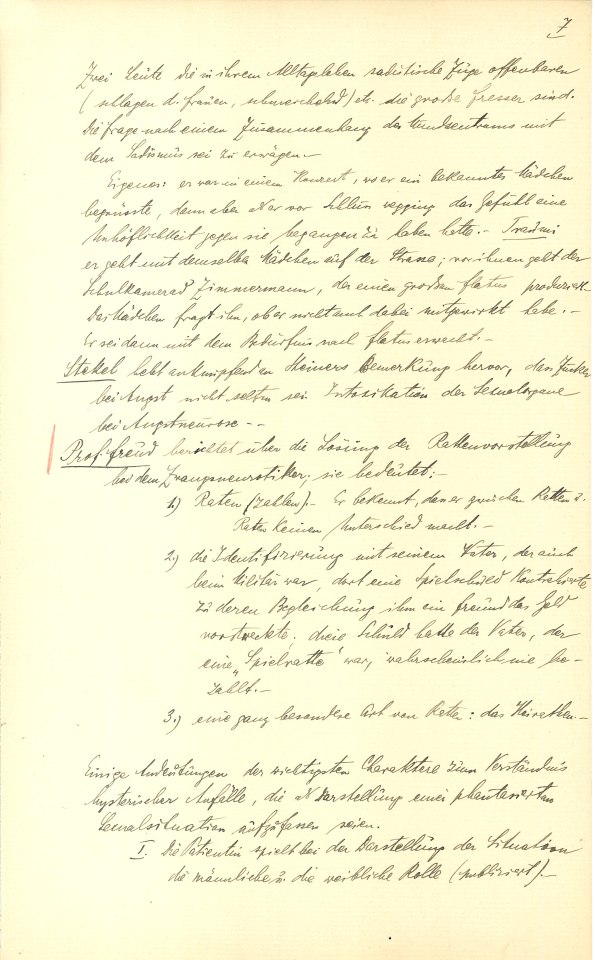 7
Zwei Leute die in ihrem Alltagsleben sadistische Züge offenbaren
(schlagen d. Frauen, etc. die große Fresser sind.
Die Frage nach einem Zusammenhang des Mundzentrums mit
dem Sadismus sei zu erwägen.—
Eigenes: er war in einem Konzert, wo er ein bekanntes Mädchen
begrüsste, dann aber vor Schluss wegging das Gefühl eine
Unhöflichkeit gegen sie begangen zu haben hatte.— Traum:
er geht mit demselben Mädchen auf der Strasse; vor ihnen geht der
Schulkamerad Zimmermann, der einen großen flatus produziert.
Das Mädchen fragt ihn, ob er nicht auch dabei mitgewirkt habe.—
Er sei dann mit dem Bedürfnis nach flatus erwacht.—
Stekel hebt anknüpfend an Steiners Bemerkung hervor, das Jucken
bei Angst nicht selten sei Intoxikation der Sexualorgane
bei Angstneurose.--
Prof. Freud berichtet über die Lösung der Rattenvorstellung
bei dem Zwangsneurotiker; sie bedeutet:—
1.) Raten (zahlen).— Er bekennt, das er zwischen Ratten u.
Raten keinen Unterschied macht.—
2.) die Identifizierung mit seinem Vater, der auch
beim Militär war, dort eine Spielschuld kontrahierte
zu deren Begleichung ihm ein Freund das Geld
vorstreckte; diese Schuld hatte der Vater, der
eine „Spielratte“ war, wahrscheinlich nie be-
zahlt.—
3.) eine ganz besondere Art von Ratten: das Heirathen.—
Einige Andeutungen der wichtigsten Charaktere zum Verständnis
hysterischer Anfälle, die Darstellung einer phantasierten
Sexualsituation aufzufassen seien.
I. Die Patientin spielt bei der Darstellung der Situation
die männliche u. die weibliche Rolle (publiziert).—